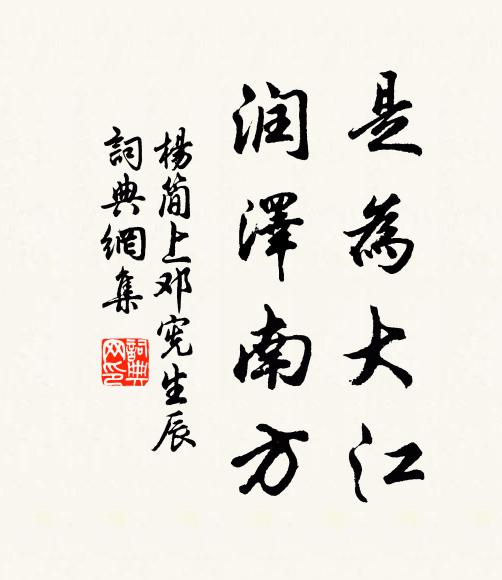 是為大江
润澤南方
楊简上邓宪生辰
詞典網集
詞典網印